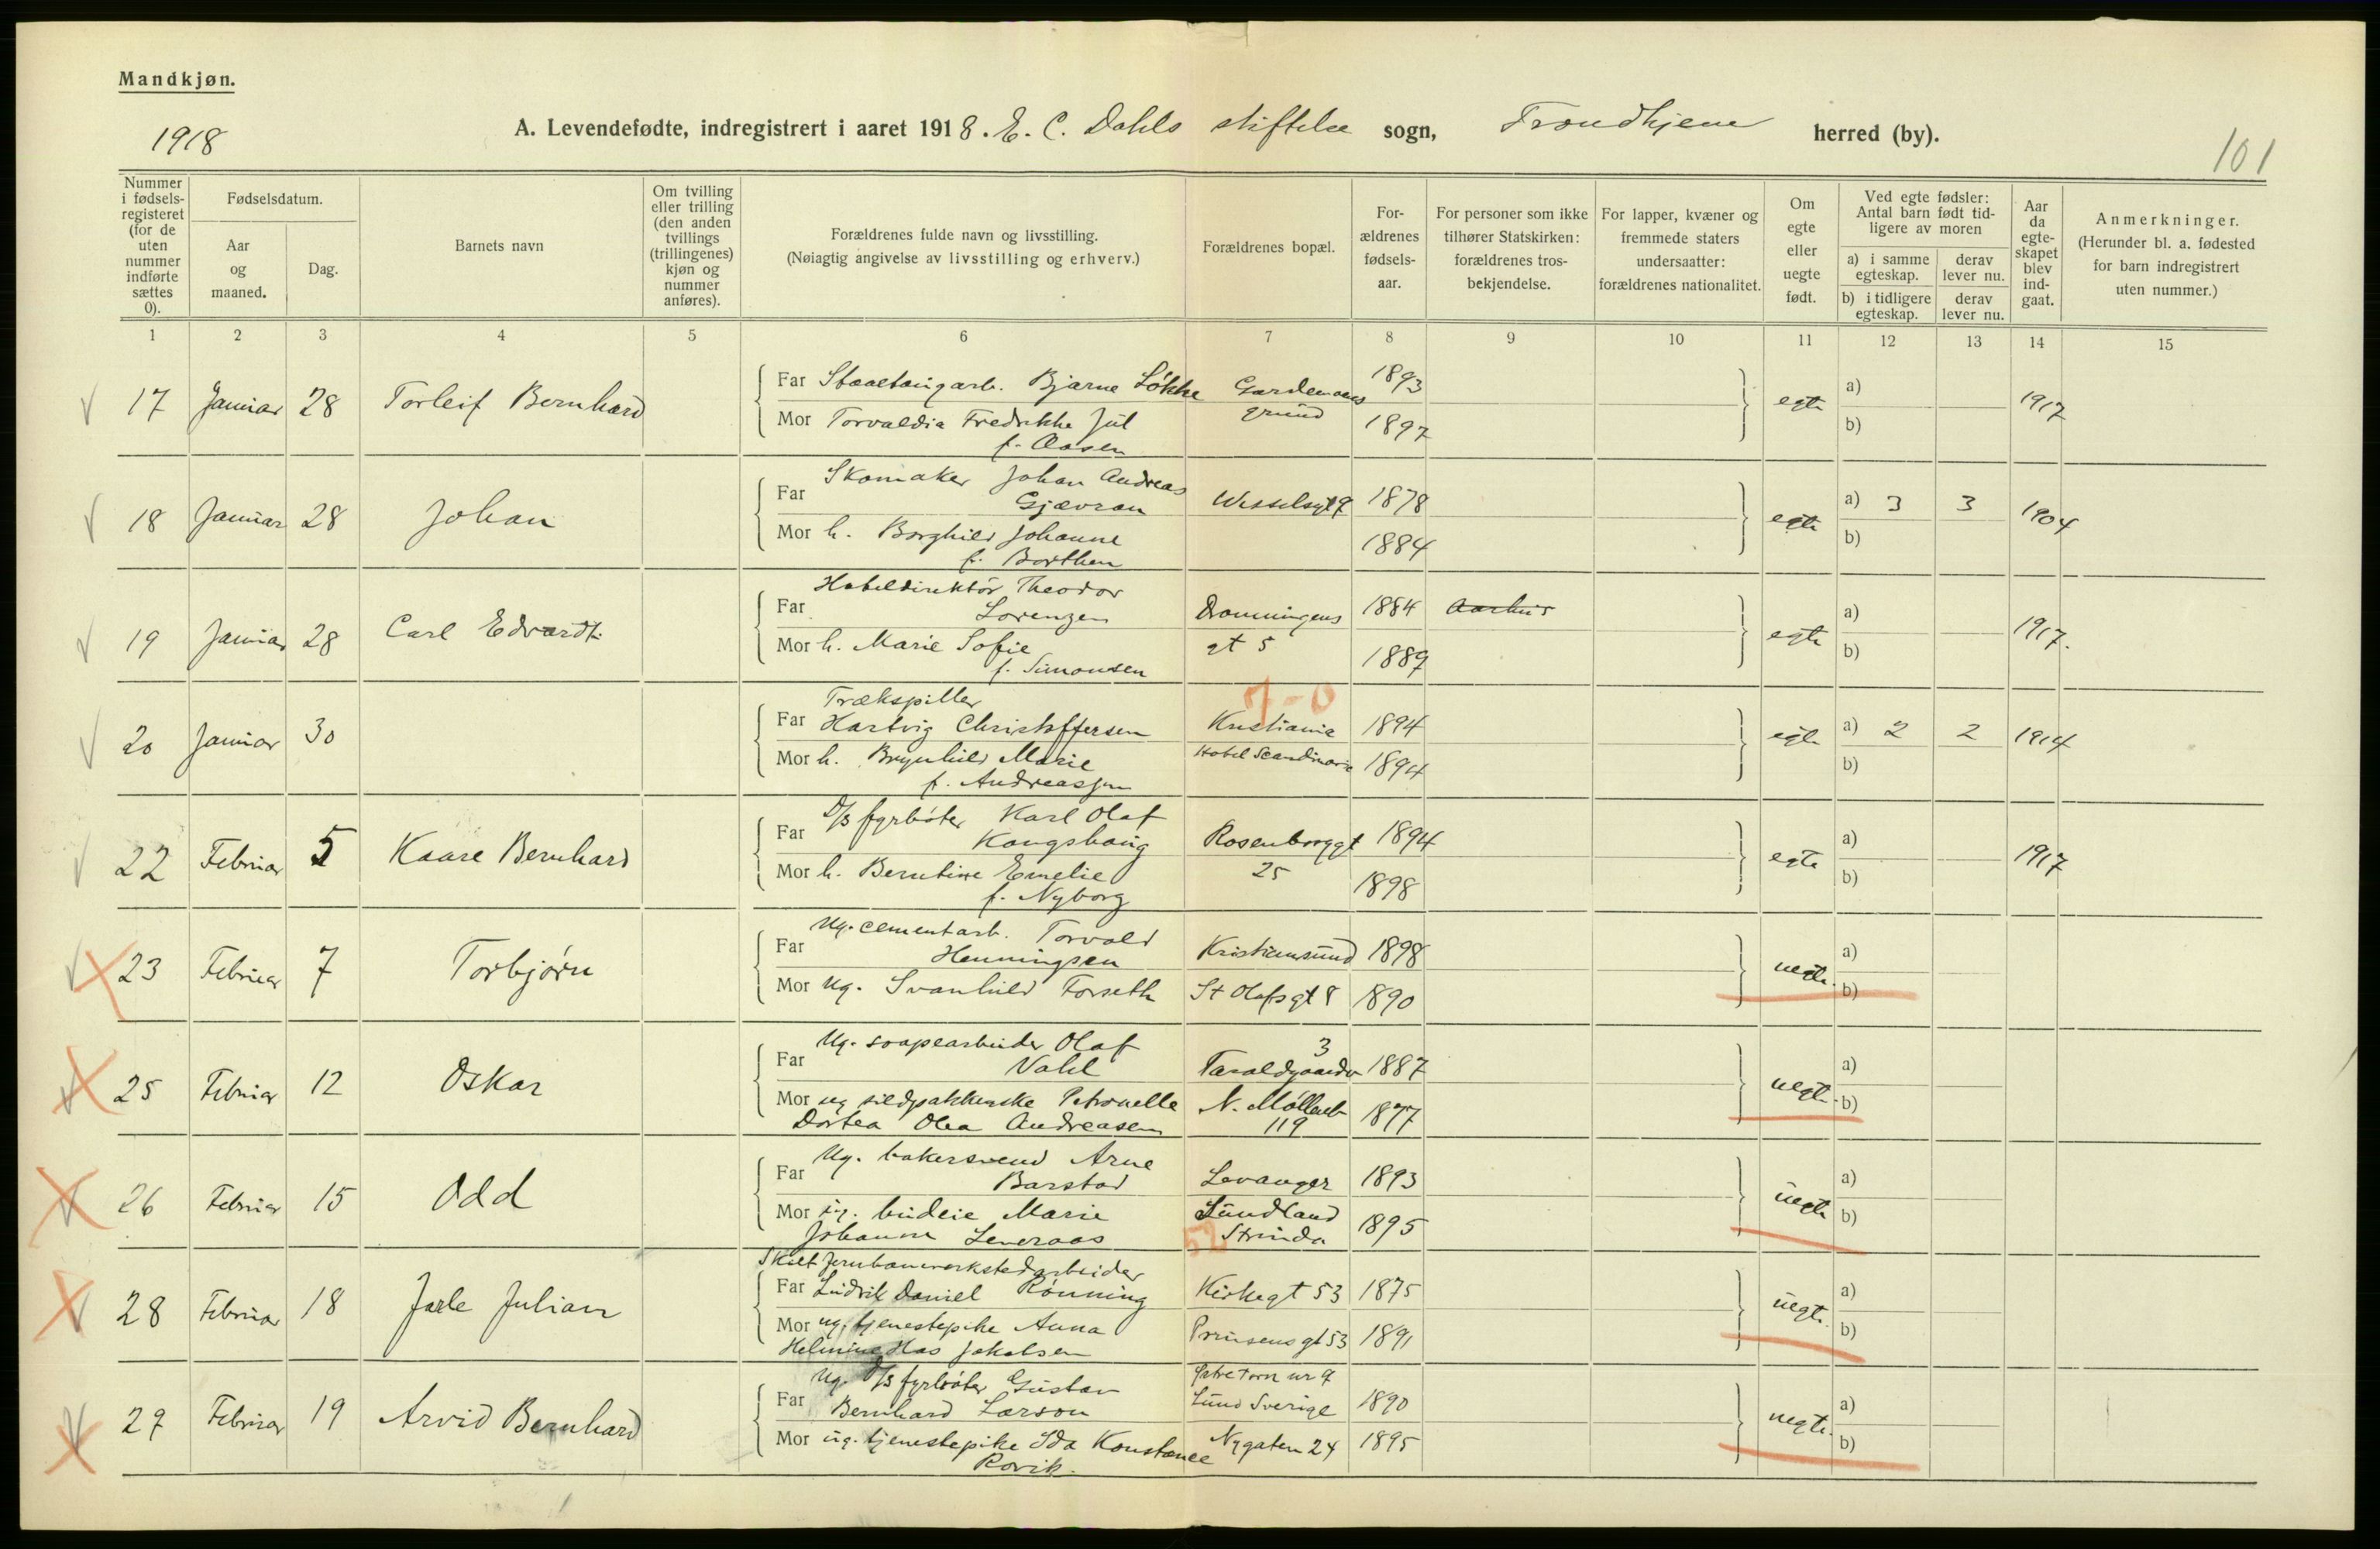 Mandkjøn.
1918
A. Levendefødte, indregistrert i aaret 1918. E. C. Dahls stiftelse sogn, Trondhjem herred (by).
101
Nummer i fødselsregisteret (for de uten nummer indførte sættes 0).
Fødselsdatum.
Aar og maaned.
Dag.
Barnets navn
Om tvilling eller trilling (den anden tvillings (trillingenes) kjøn og nummer anføres).
Forældrenes fulde navn og livsstilling.
(Nøiagtig angivelse av livsstilling og erhverv.)
Forældrenes bopæl.
Forældrenes fødselsaar.
For personer som ikke tilhører Statskirken: forældrenes trosbekjendelse.
For lapper, kvæner og fremmede staters undersaatter: forældrenes nationalitet.
Om egte eller uegte født.
Ved egte fødsler: Antal barn født tidligere av moren
a) i samme egteskap.
derav lever nu.
b) i tidligere egteskap.
derav lever nu.
Aar da egteskapet blev indgaat.
Anmerkninger.
(Herunder bl. a. fødested for barn indregistrert uten nummer.)
1 2 3 4 5 6 7 8 9 10 11 12 13 14 15
17 Januar 28 Torleif Bernhard
Far Bjarne Løkke 1893
Mor Torvaldia Fredrikke Jul grund 1897 egte a) b) 1917
f. Aasen
18 Januar 28 Johan
Far Skomaker Johan Andreas
Gjævran Wesselsgt 9 1878
Mor h. Borghild Johanne 1884 egte a) 3 3 b) 1904
f. Borthen
19 Januar 28 Carl Edvardt
Far Hoteldirektør Theodor
Lorenzen Dronningens 1884 Aarhus
Mor h. Marie Sofie gt 5 1889 egte a) b) 1917.
f. Simonsen
20 Januar 30
Trækspiller 7-0
Far Hartvig Christoffersen Kristiania 1894
Mor h. Brynhild Marie Hotel Scandinavie 1894 egte a) 2 2 b) 1914
f. Andreassen
22 Februar 5 Kaare Bernhard
Far D/S fyrbøter Karl Olaf
Kongshaug Rosenborggt 1894
Mor h. Berntine Emelie 25 1898 egte a) b) 1917
f. Nyborg
23 Februar 7 Torbjørn
Far Ug. cementarb. Torvald
Henningsen Kristiansund 1898
Mor Ug. Svanhild Forseth St Olafsgt 8 1890 uegte. a) b)
25 Februar 12 Oskar
Far Ug. soapearbeider Olaf 3
Vahl Taraldgaardv 1887
Mor ug sildpakkerske Petronelle N. Møllenb 1877 uegte. a) b)
Dortea Olea Andreasen 119
26 Februar 15 Odd
Far Ug. bakersvend Arne
Barstad Levanger 1893
Mor ug. budeie Marie Lundland 1895 uegte a) b)
Johanna 52 Strinda
28 Februar 18 Jarle Julian
Skilt Jernbaneverkstedarbeider
Far Ludvik Daniel Rønning Kirkegt 53 1875
Mor ug. tjenestepike Anna Prinsens gt 53 1891 uegte. a) b)
Helmine Jakobsen
27 Februar 19 Arvid Bernhard
Far Ug. D/S fyrbøter Gustav nr 9
Bernhard Larson Lund Sverige 1890
Mor ug. tjenestepike Ida Konstance Nygaten 24 1895 uegte. a) b)
Rovik.